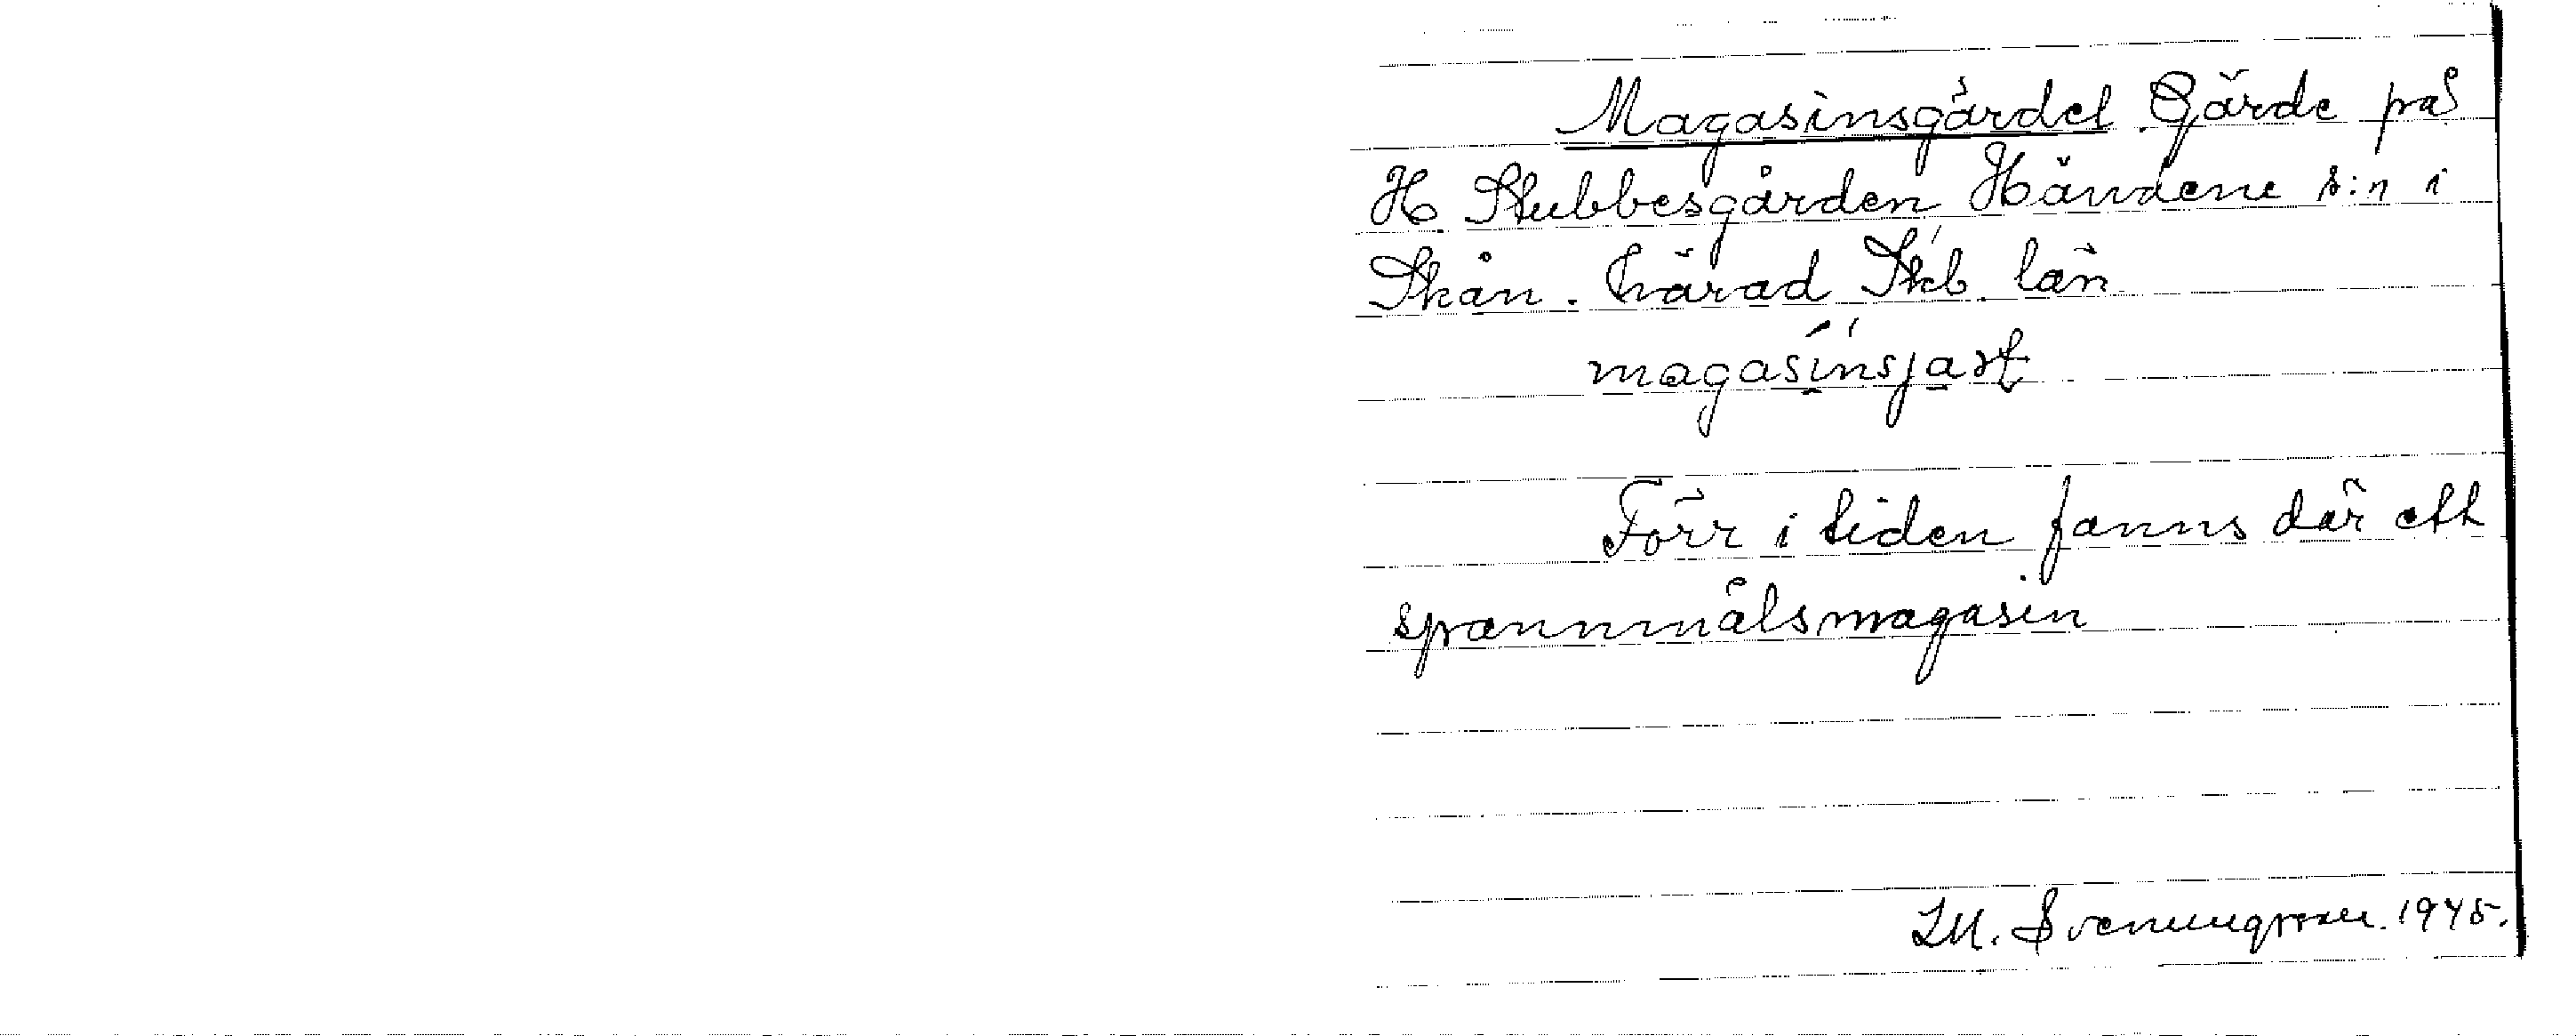 Magasinsgärdet Gärde på
H. Stubbesgården Händene s:n i
Skån. härad Skb. län
magasinsjaṟt
Förr i tiden fanns där ett
spannmålsmagasin
M. Svenungsson 1945.